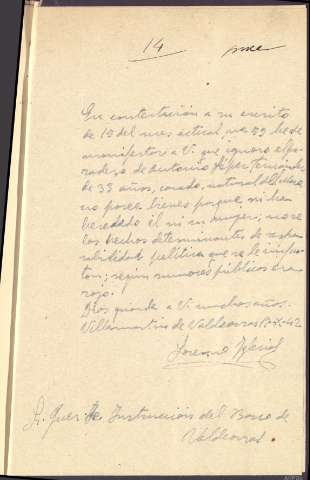 14
En contestación a su escrito
de 15 del mes actual, nº 59 he de
manifestar a V. que ignoro el pa-
radero de Antonio López Fernández
de 35 años, casado, natural de
no posee bienes porque ni han
heredado él ni su mujer;
los hechos determinantes de respon-
sabilidad política que se le impu-
tan; según rumores públicos era
rojo.
Dios guarde a V. muchos años.
Villamartín de Valdeorras
Lorenzo
Sr. Juez de Instrucción del Barco de
Valdeorras.